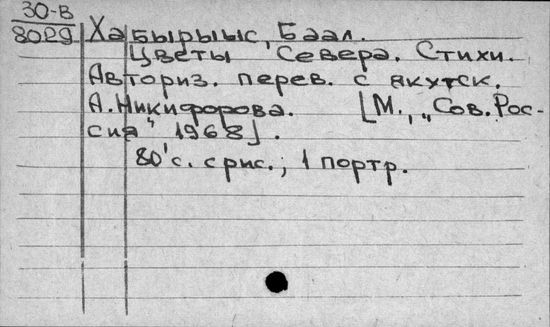 30-В
8029 Хабырыыс, Баал.
Цветы Севера. Стихи.
Авториз. перев. с якутск.
А. Никифорова. [М., „Сов. Рос-
сия" 1968].
80 с. с рис.; 1 портр.